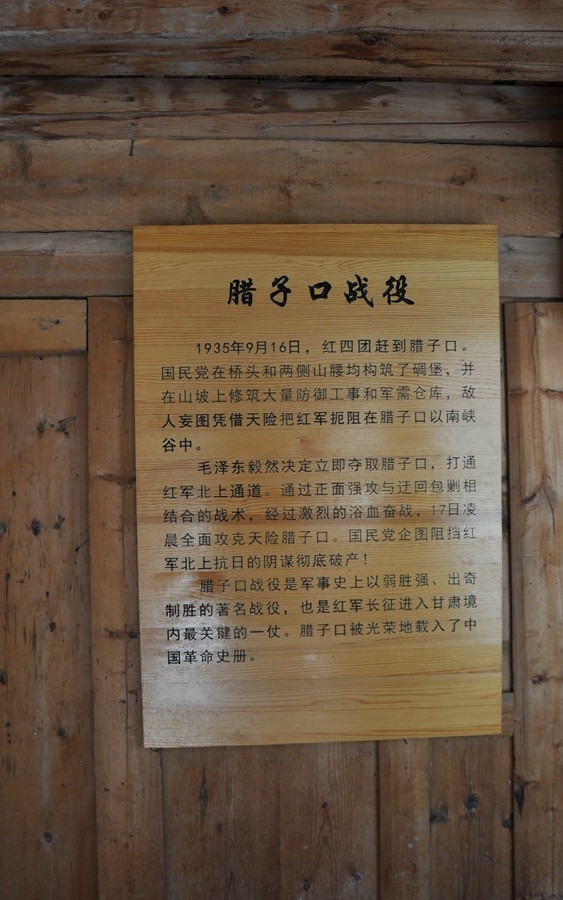 腊子口战役
1935年9月16日，红四团赶到腊子口。
国民党在桥头和两侧山腰均构筑了碉堡，并
在山坡上修筑大量防御工事和军需仓库，敌
人妄图凭借天险把红军扼阻在腊子口以南峡
谷中。
毛泽东毅然决定立即夺取腊子口，打通
红军北上通道。通过正面强攻与迂回包剿相
结合的战术，经过激烈的浴血奋战，17日凌
晨全面攻克天险腊子口。国民党企图阻挡红
军北上抗日的阴谋彻底破产！
腊子口战役是军事史上以弱胜强、出奇
制胜的著名战役，也是红军长征进入甘肃境
内最关键的一仗。腊子口被光荣地载入了中
国革命史册。